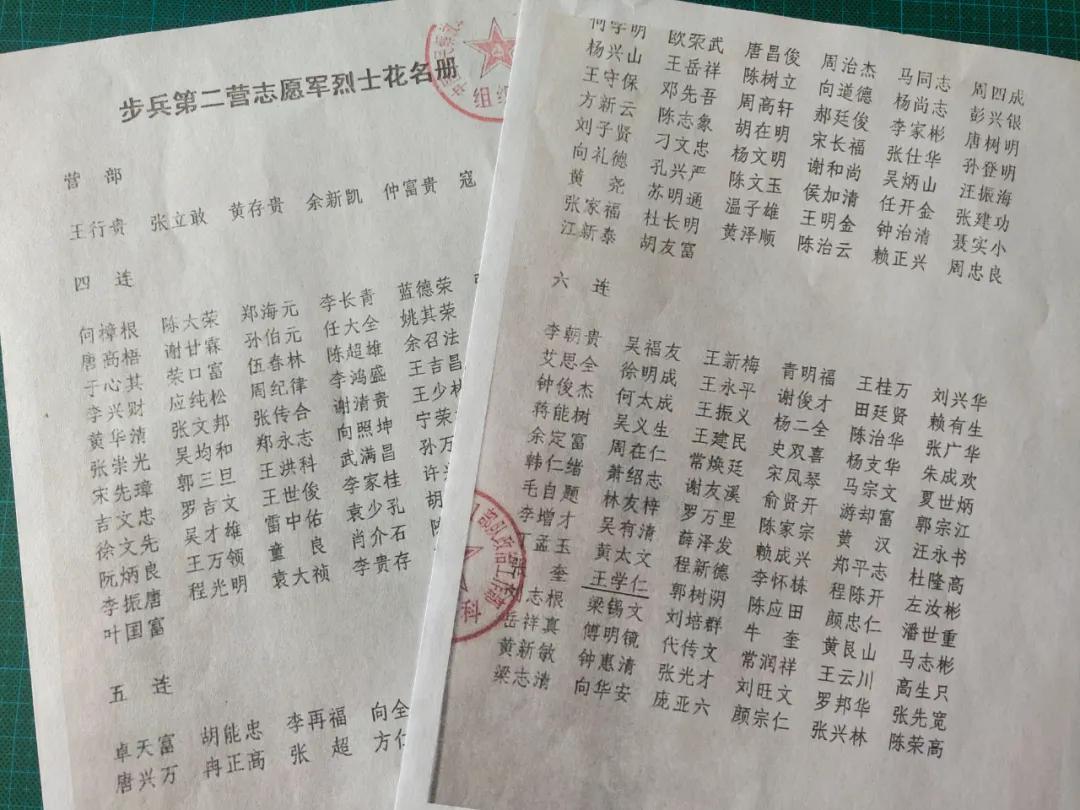 步兵第二营志愿军烈士花名册
组织
营 部
王行贵 张立敢 黄存贵 余新凯 仲富贵 寇
四 连
何樟根 陈大荣 郑海元 李长青 蓝德荣
唐高梧 谢甘霖 孙伯元 任大全 姚其荣
于心其 荣口富 伍春林 陈超雄 余召法
李兴财 应纯松 周纪律 李鸿盛 王吉昌
黄华清 张文邦 张传合 谢清贵 王少林
张崇光 吴均和 郑永志 向照坤 宁荣
宋先璋 郭三旦 王洪科 武满昌 孙万
吉文忠 罗吉文 王世俊 李家桂 许
徐文先 吴才雄 雷中佑 袁少孔 胡
阮炳良 王万领 童 良 肖介石 陈
李振唐 程光明 袁大祯 李贵存
叶国富
五 连
卓天富 胡能忠 李再福 向全
唐兴万 冉正高 张 超 方仁
何学明 欧荣武 唐昌俊 周治杰 马同志 周四成
杨兴山 王岳祥 陈树立 向道德 杨尚志 彭兴银
王守保 邓先吾 周高轩 郝廷俊 李家彬 唐树明
方新云 陈志象 胡在明 宋长福 张仕华 孙登明
刘子贤 刁文忠 杨文明 谢和尚 吴炳山 汪振海
向礼德 孔兴严 陈文玉 侯加清 任开金 张建功
黄 尧 苏明通 温子雄 王明金 钟治清 聂实小
张家福 杜长明 黄泽顺 陈治云 赖正兴 周忠良
江新泰 胡友富
六 连
李朝贵 吴福友 王新梅 青明福 王桂万 刘兴华
艾思全 徐明成 王永平 谢俊才 田廷贤 赖有生
钟俊杰 何太成 王振义 杨二全 陈治华 张广华
蒋能树 吴义生 王建民 史双喜 杨支华 朱成欢
余定富 周在仁 常焕廷 宋凤琴 马宗文 夏世炳
韩仁绪 萧绍志 谢友溪 俞贤开 游却富 郭宗江
毛自题 林友梓 罗万里 陈家宗 黄 汉 汪永书
李增才 吴有清 薛泽发 赖成兴 郑平志 杜隆高
丁孟玉 黄太文 程新德 李怀栋 程陈开 左汝彬
奎 王学仁 郭树湖 陈应田 颜忠仁 潘世重
志根 梁锡文 刘培群 牛 奎 黄艮山 马志彬
岳祥真 傅明镜 代传文 常润祥 王云川 高生只
黄新敏 钟惠清 张光才 刘旺文 罗邦华 张先宽
梁志清 向华安 庞亚六 颜宗仁 张兴林 陈荣高
部队政治工作